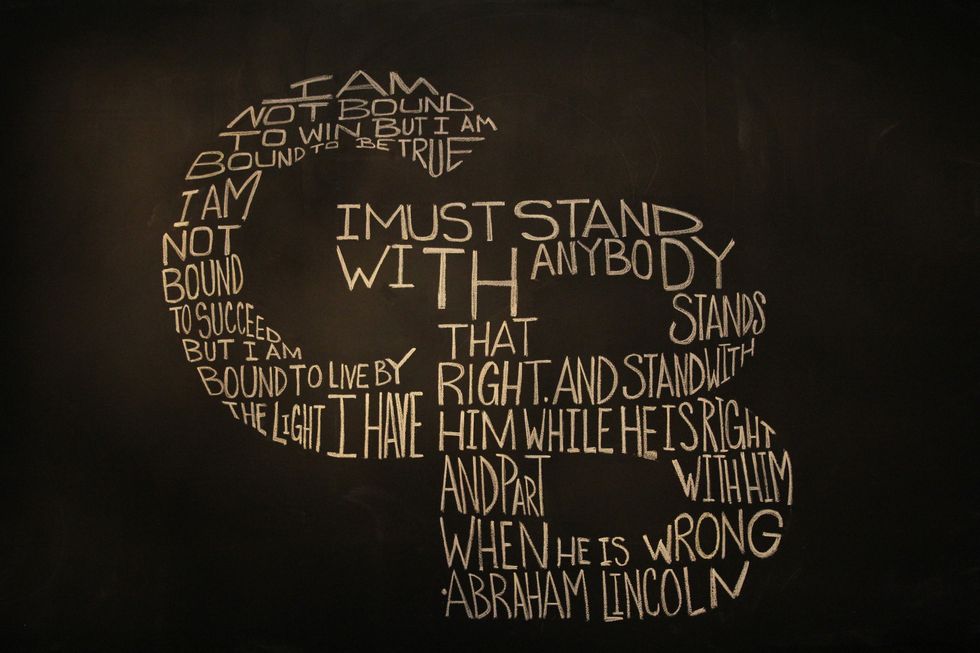 I AM
NOT BOUND
TO WIN BUT I AM
BOUND TO BE TRUE
I AM
NOT
BOUND
TO SUCCEED
BUT I AM
BOUND TO LIVE BY
THE LIGHT I HAVE
I MUST STAND
WITH ANYBODY
STANDS
THAT
RIGHT. AND STAND WITH
HIM WHILE HE IS RIGHT
AND PART WITH HIM
WHEN HE IS WRONG
·ABRAHAM LINCOLN